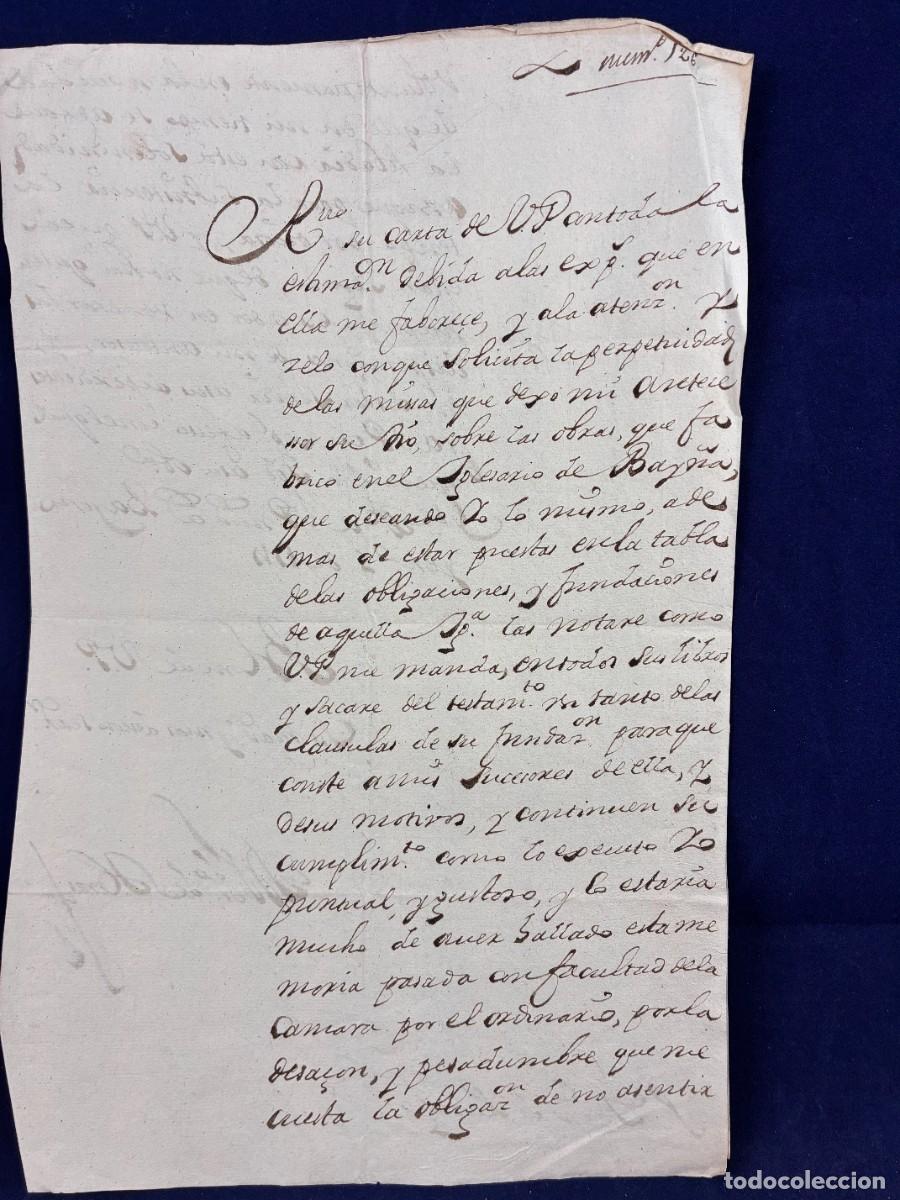 num.º 126
Rvo su carta de V.P con toda la
estimaon. debida a las exps. que en
ella me faboreçe, y ala atenzon. y
zelo conque solicita la perpetuidad
de las missas que dexo mi antece
sor su tio, sobre las obras, que fa
brico en el Iglesario de Bayña,
que deseando Yo lo mismo, a de
mas de estar puestas en la tabla
de las obligaciones, y fundaciones
de aquella Igª. las notare como
V.P me manda, en todos sus libros
y sacare del testamto. un tanto de las
clausulas de su fundazon. para que
conste a mis succesores de ella, y
de sus motivos, y continuen su
cumplimto. como lo executo Yo
puntual, y gustoso, y lo estaria
mucho de aver hallado esta me
moria pasada con facultad de la
camara por el ordinario, por la
desaçon, y pesadumbre que me
cuesta la obligazon de no asentir
todocoleccion